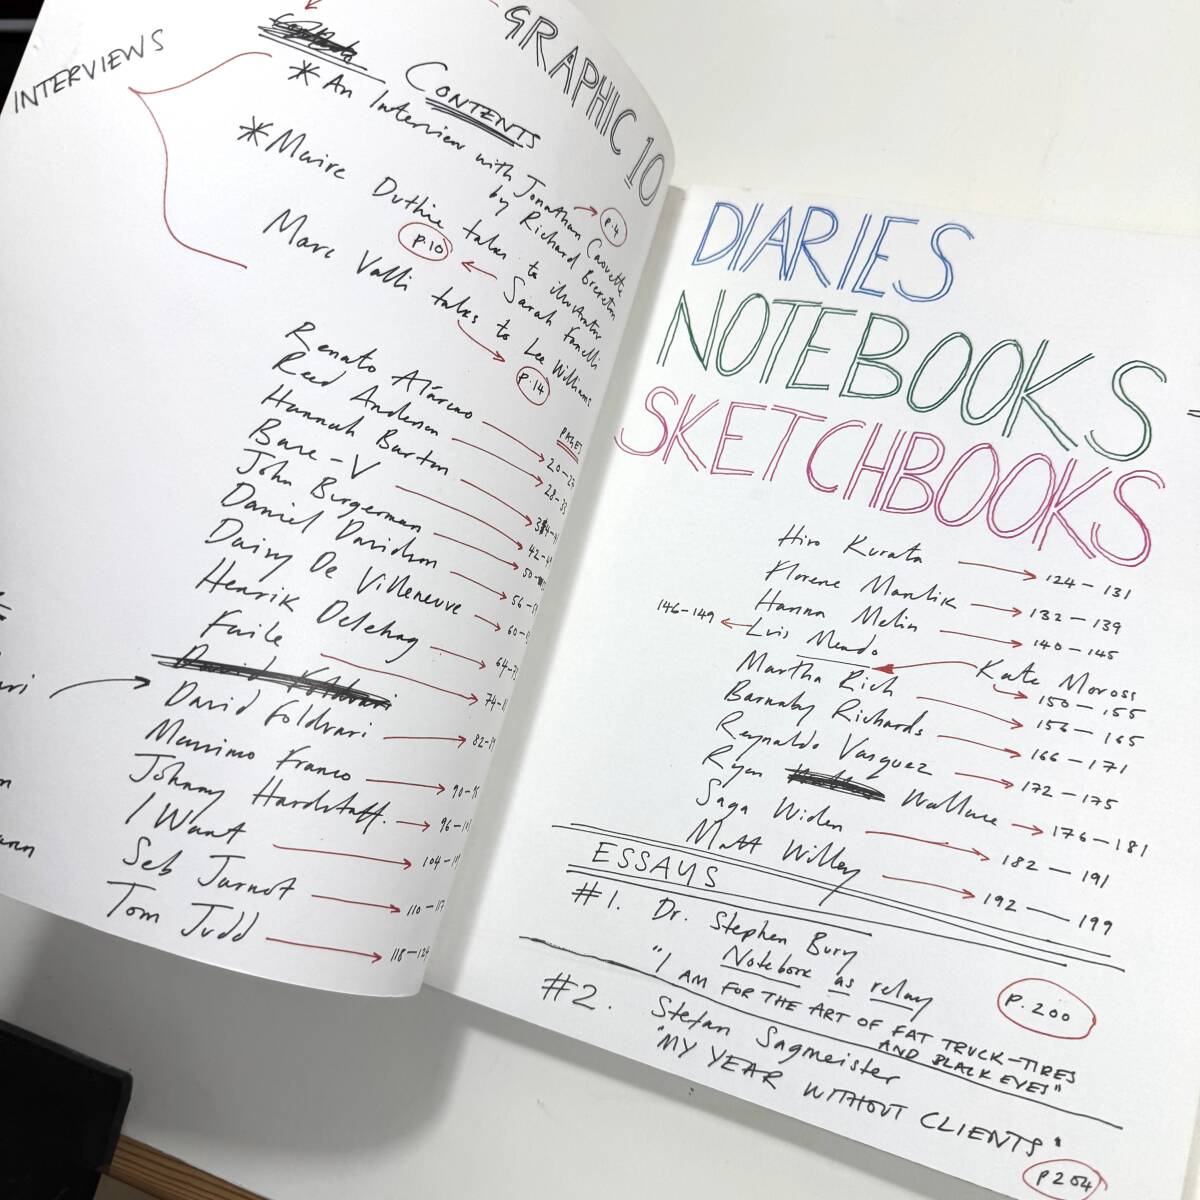 GRAPHIC 10
INTERVIEWS
CONTENTS
* An Interview with Jonathan Caouette
by Richard Brereton
p.4
* Maire Duthie talks to illustrator
Sarah Fanelli
p.10
Marc Valli talks to Lee Williams
p.14
PAGES
Renato Alarcao
Reed Anderson
Hannah Barton
Base-V
John Burgerman
Daniel Davidson
Daisy De Villeneuve
Henrik Delehag
Faile
David Foldvari
Massimo Franco
Johnny Hardstaff.
I Want
Seb Jarnot
Tom Judd
118-124
DIARIES
NOTEBOOKS
SKETCHBOOKS
Hiro Kurata 124-131
Florene Manlik 132-139
Hanna Melin 140-145
146-149 Luis Mendo
Kate Moross 150-155
Martha Rich 156-165
Barnaby Richards 166-171
Reynaldo Vasquez 172-175
Ryan Wallace 176-181
Saga Widen 182-191
Matt Willey 192-199
ESSAYS
#1. Dr. Stephen Bury
Notebook as relay
"I AM FOR THE ART OF FAT TRUCK-TIRES
AND BLACK EYES"
p.200
#2. Stefan Sagmeister
"MY YEAR WITHOUT CLIENTS"
p204